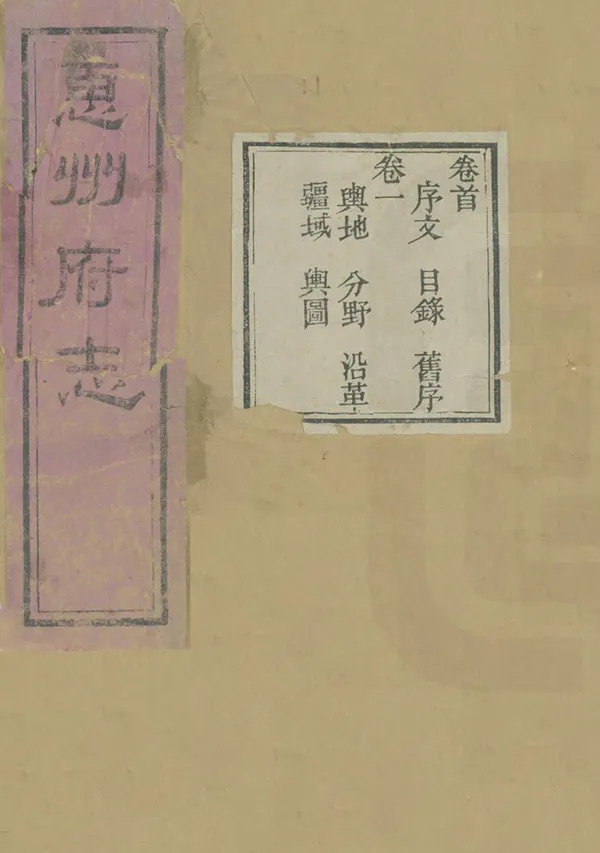 惠州府志
卷首
序文 目錄 舊序
卷一
輿地 分野 沿革
疆域 輿圖